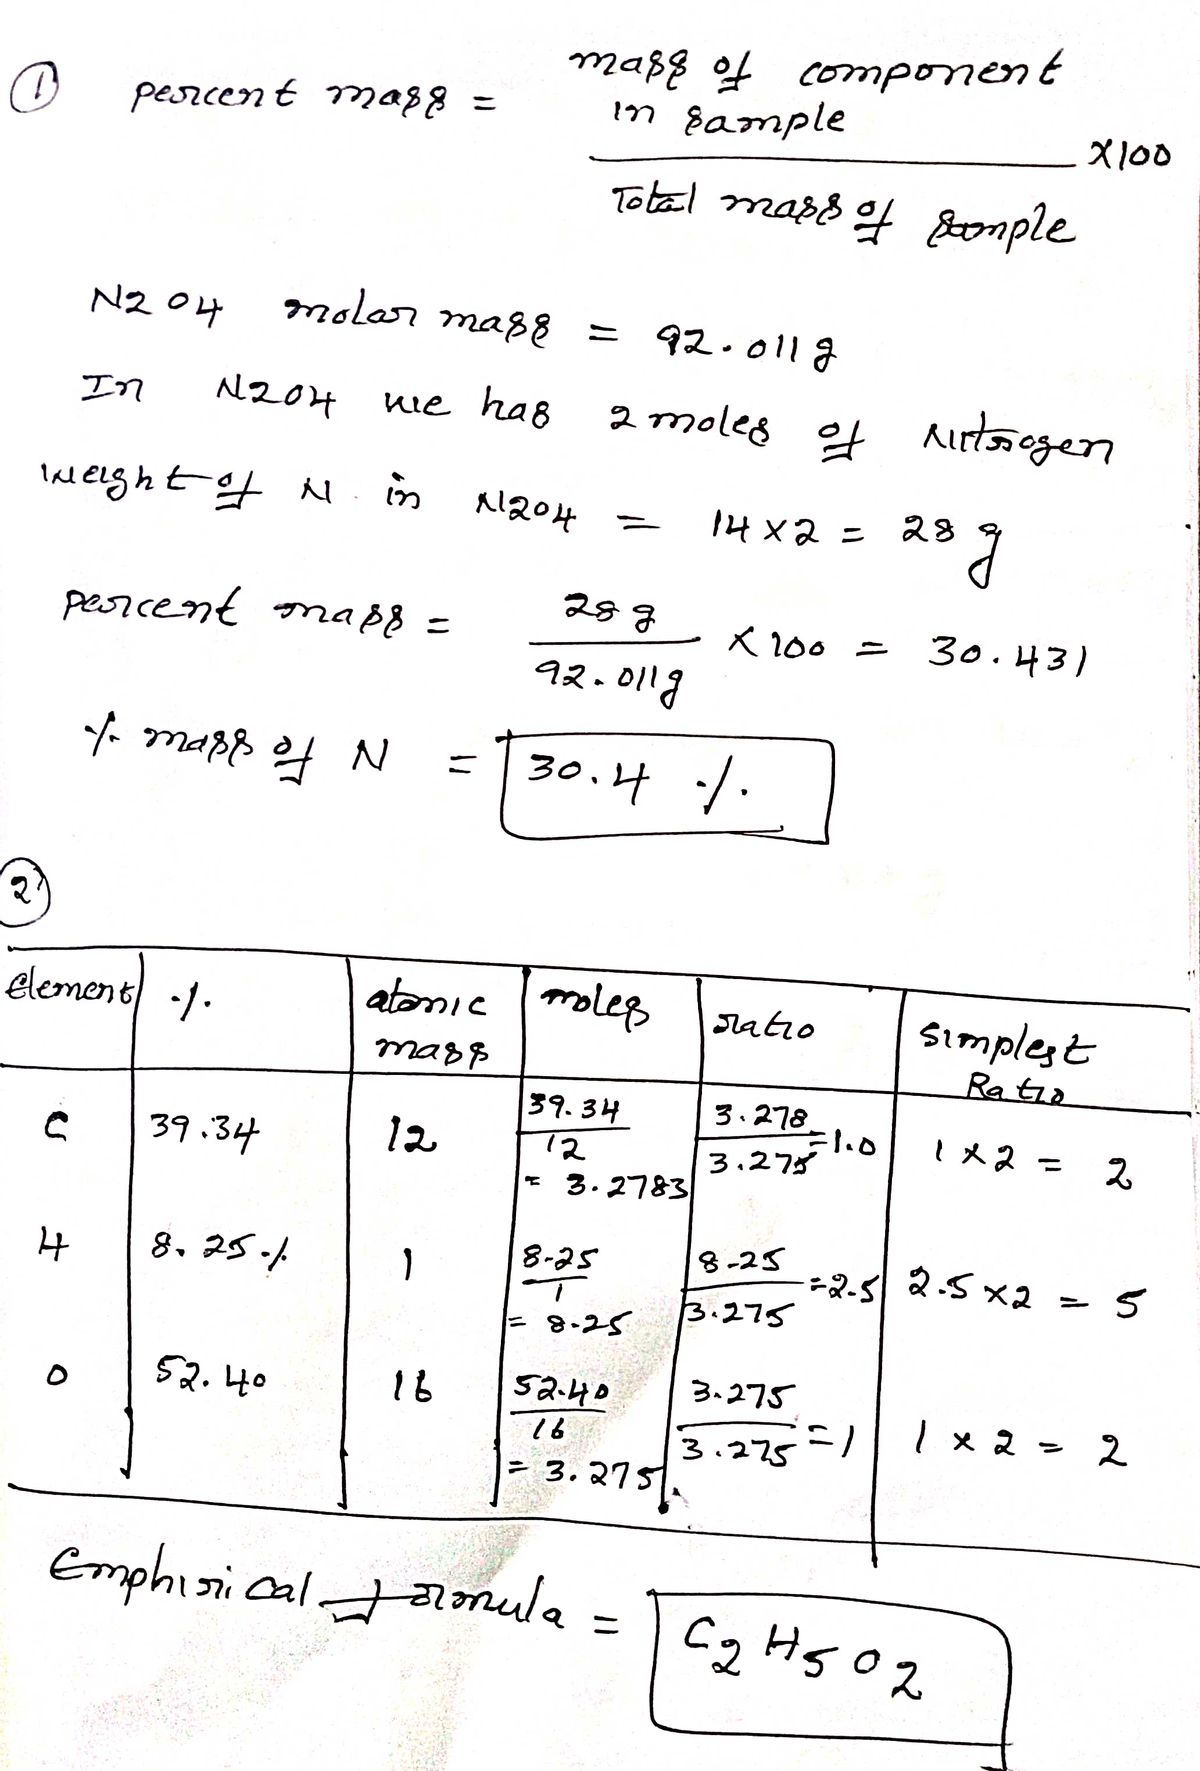 1 percent mass = mass of component
in sample
x100
Total mass of sample
N2O4 molar mass = 92.011g
In N2O4 we has 2 moles of Nitrogen
weight of N in N2O4 = 14 x 2 = 28 g
percent mass = 28 g
92.011g x 100 = 30.431
% mass of N = 30.4 %
2
Element % atomic mass moles ratio simplest Ratio
C 39.34 12 39.34/12 = 3.2783 3.278/3.275 = 1.0 1 x 2 = 2
H 8.25% 1 8.25/1 = 8.25 8.25/3.275 = 2.5 2.5 x 2 = 5
O 52.40 16 52.40/16 = 3.275 3.275/3.275 = 1 1 x 2 = 2
Emphirical formula = C2H5O2